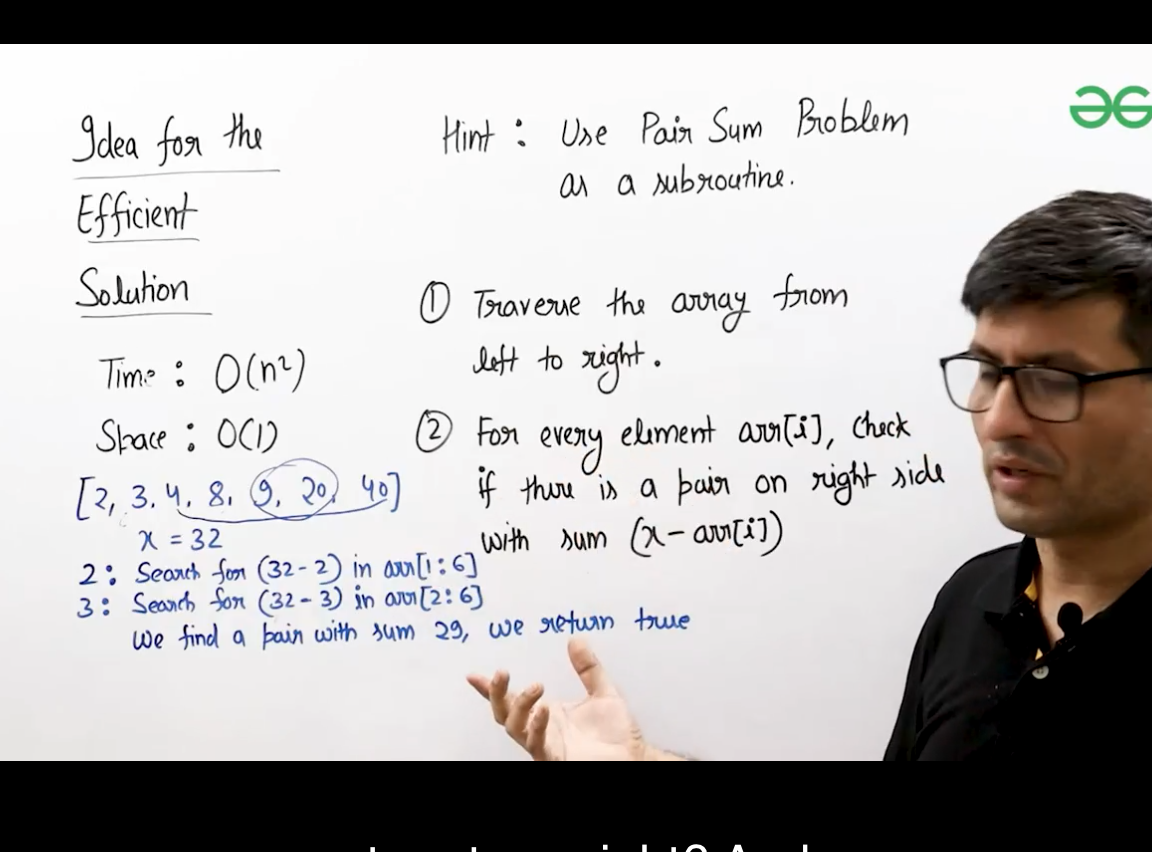 Idea for the
Efficient
Solution
Time : O(n²)
Space : O(1)
[2, 3, 4, 8, 9, 20, 40]
x = 32
2 : Search for (32-2) in arr[1:6]
3 : Search for (32-3) in arr[2:6]
We find a pair with sum 29, we return true
Hint : Use Pair Sum Problem
as a subroutine.
① Traverse the array from
left to right.
② For every element arr[i], check
if there is a pair on right side
with sum (x-arr[i])